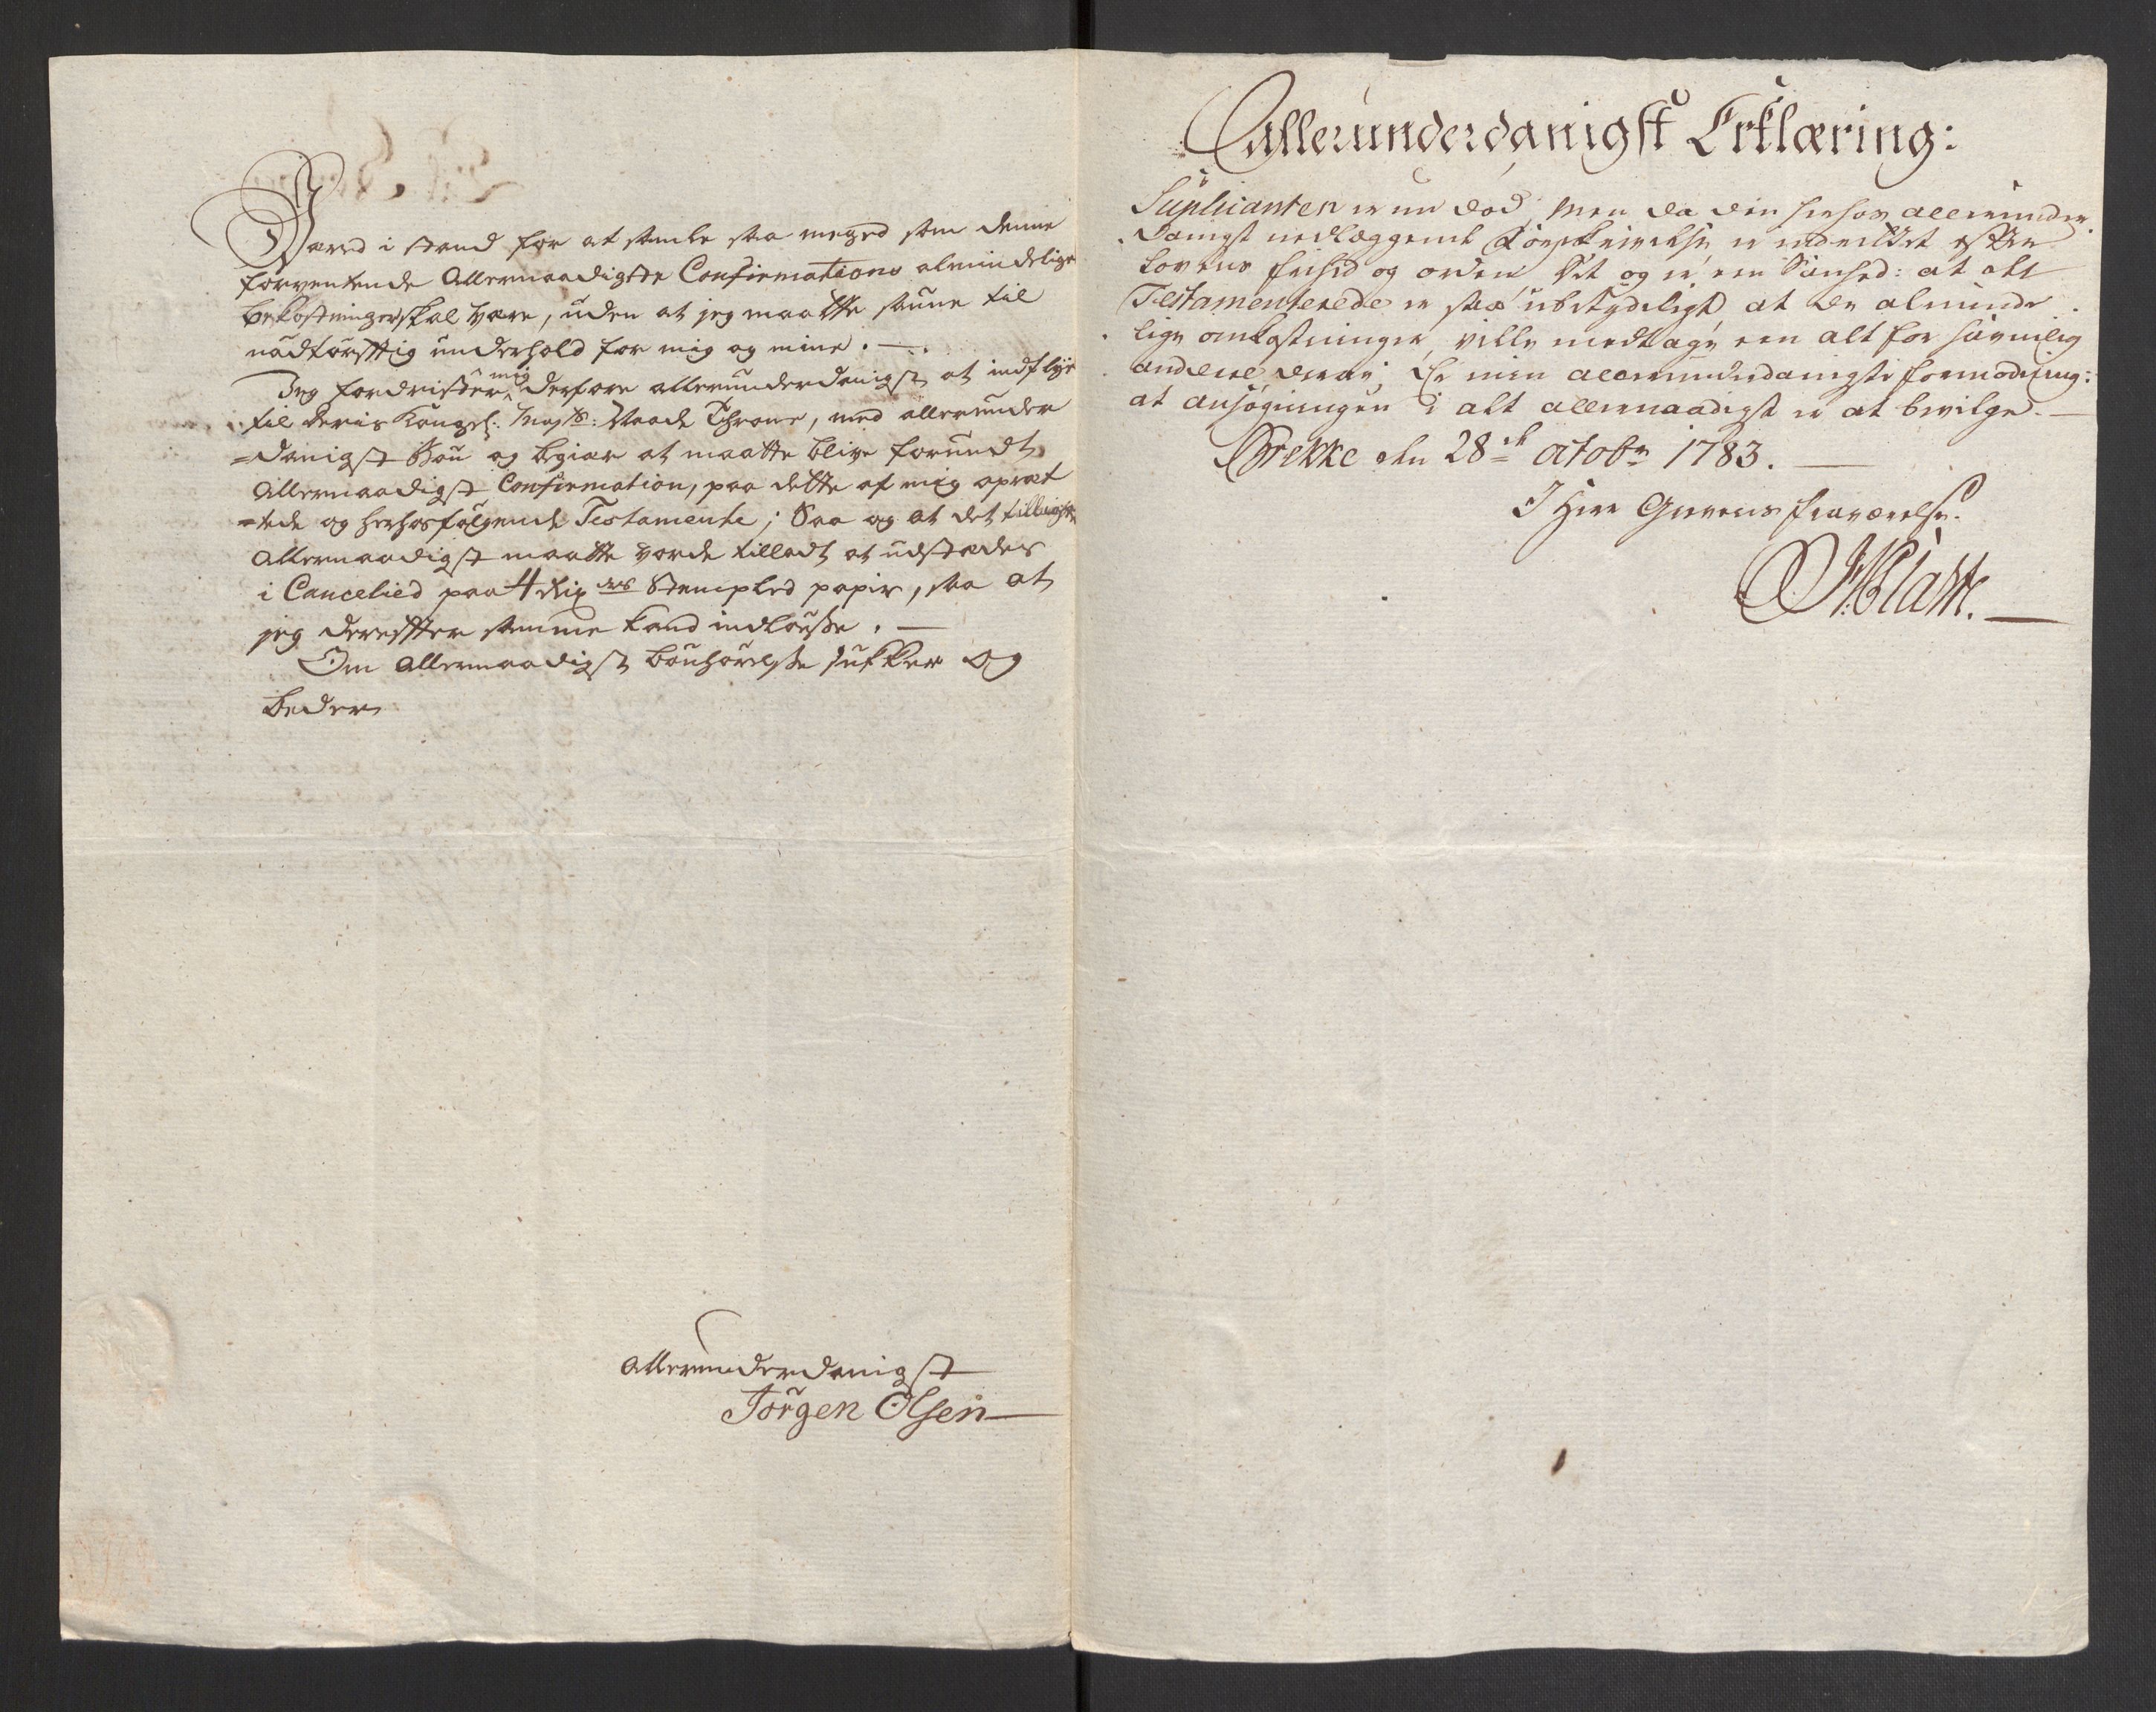 Været i stand for at samle saa meged som denne
forventende Allernaadigste Confirmations almindelige
bekostninger skal være, uden at jeg maatte savne til
nødtørfftig underhold for mig og mine. —.
Jeg fordrister mig derfore allerunderdanigst at indflye
til Deris Kongel: Mayts: Naade Throne, med allerunder
=danigst Bøn og begiær at maatte blive forundt
Allernaadigst Confirmation, paa dette af mig opræt
=tede og herhosfølgende Testamente; Saa og at det tilligst
Allernaadigst maatte vorde tilladt at udstædes
i Cancelied paa 4 rix dlrs Stempled papir, saa at
jeg derefter samme kand indløse. —
Om allernaadigst bønhørelse sukker og
beder
Allerunderdanigst
Jörgen Olsen
Allerunderdanigst Erklæring:
Supplicanten er nu död, Men da den herhos allerunder
danigst nedlæggende er indrettet efter
Lovens forhold og orden, Det og er een Sandhed: at alt
Testamenterede er saa ubetydeligt, at de alminde
lige omkostninger, ville medtage een alt for
andeel deraf; Er min allerunderdanigste formodning:
at ansøgningen i alt allernaadigst er at bevilge. —
Brekke den 28de Octobr 1783. —
I Herr Grevens fraværelse.